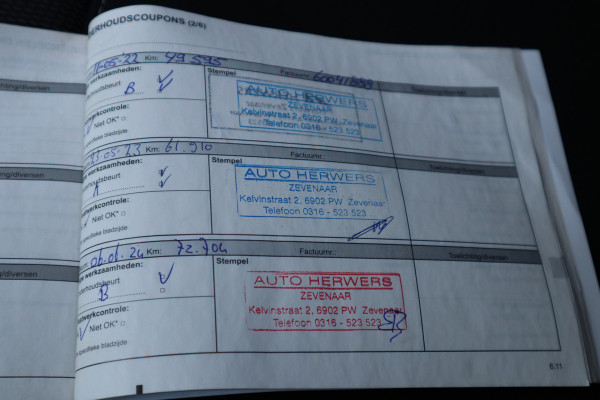 ERHOUDSCOUPONS (2/6)
11-05-22 Km: 49 595
werkzaamheden:
Stempel
Factuurnr:
beurt B
AUTO HERWERS
ZEVENAAR
Kelvinstraat 2, 6902 PW Zevenaar
Telefoon 0316 - 523 523
erkcontrole:
Niet OK*
bladzijde
05-23 Km: 61.910
werkzaamheden:
Stempel
Factuurnr:
Toelichting/diversen
houdsbeurt
AUTO HERWERS
ZEVENAAR
Kelvinstraat 2, 6902 PW Zevenaar
Telefoon 0316 - 523 523
werkcontrole:
Niet OK*
specifieke bladzijde
ng/diversen
06.01.24 Km: 72.704
werkzaamheden:
Stempel
Factuurnr:
Toelichting/diversen
houdsbeurt
B
AUTO HERWERS
ZEVENAAR
Kelvinstraat 2, 6902 PW Zevenaar
Telefoon 0316 - 523 523
werkcontrole:
Niet OK*
specifieke bladzijde
g/diversen
6.11